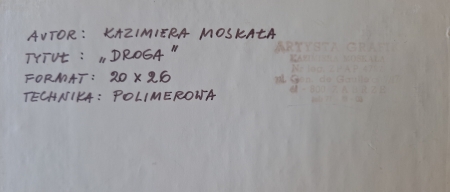 AUTOR: KAZIMIERA MOSKAŁA
TYTUŁ: „DROGA”
FORMAT: 20 x 26
TECHNIKA: POLIMEROWA
ARTYSTA GRAFIK